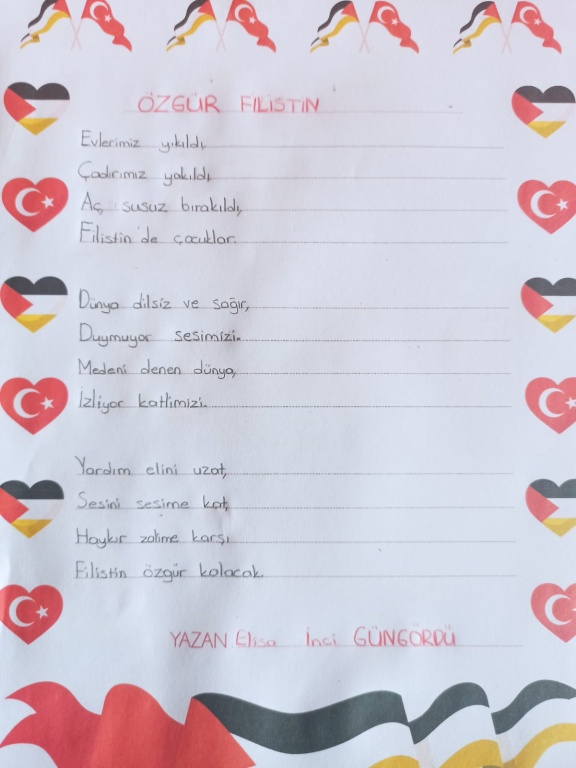 ÖZGÜR FİLİSTİN
Evlerimiz yıkıldı,
Çadırımız yakıldı,
Aç, susuz bırakıldı,
Filistin'de çocuklar.
Dünya dilsiz ve sağır,
Duymuyor sesimizi.
Medeni denen dünya,
İzliyor katlimizi.
Yardım elini uzat,
Sesini sesime kat,
Haykır zalime karşı
Filistin özgür kalacak.
YAZAN Elisa İnci GÜNGÖRDÜ